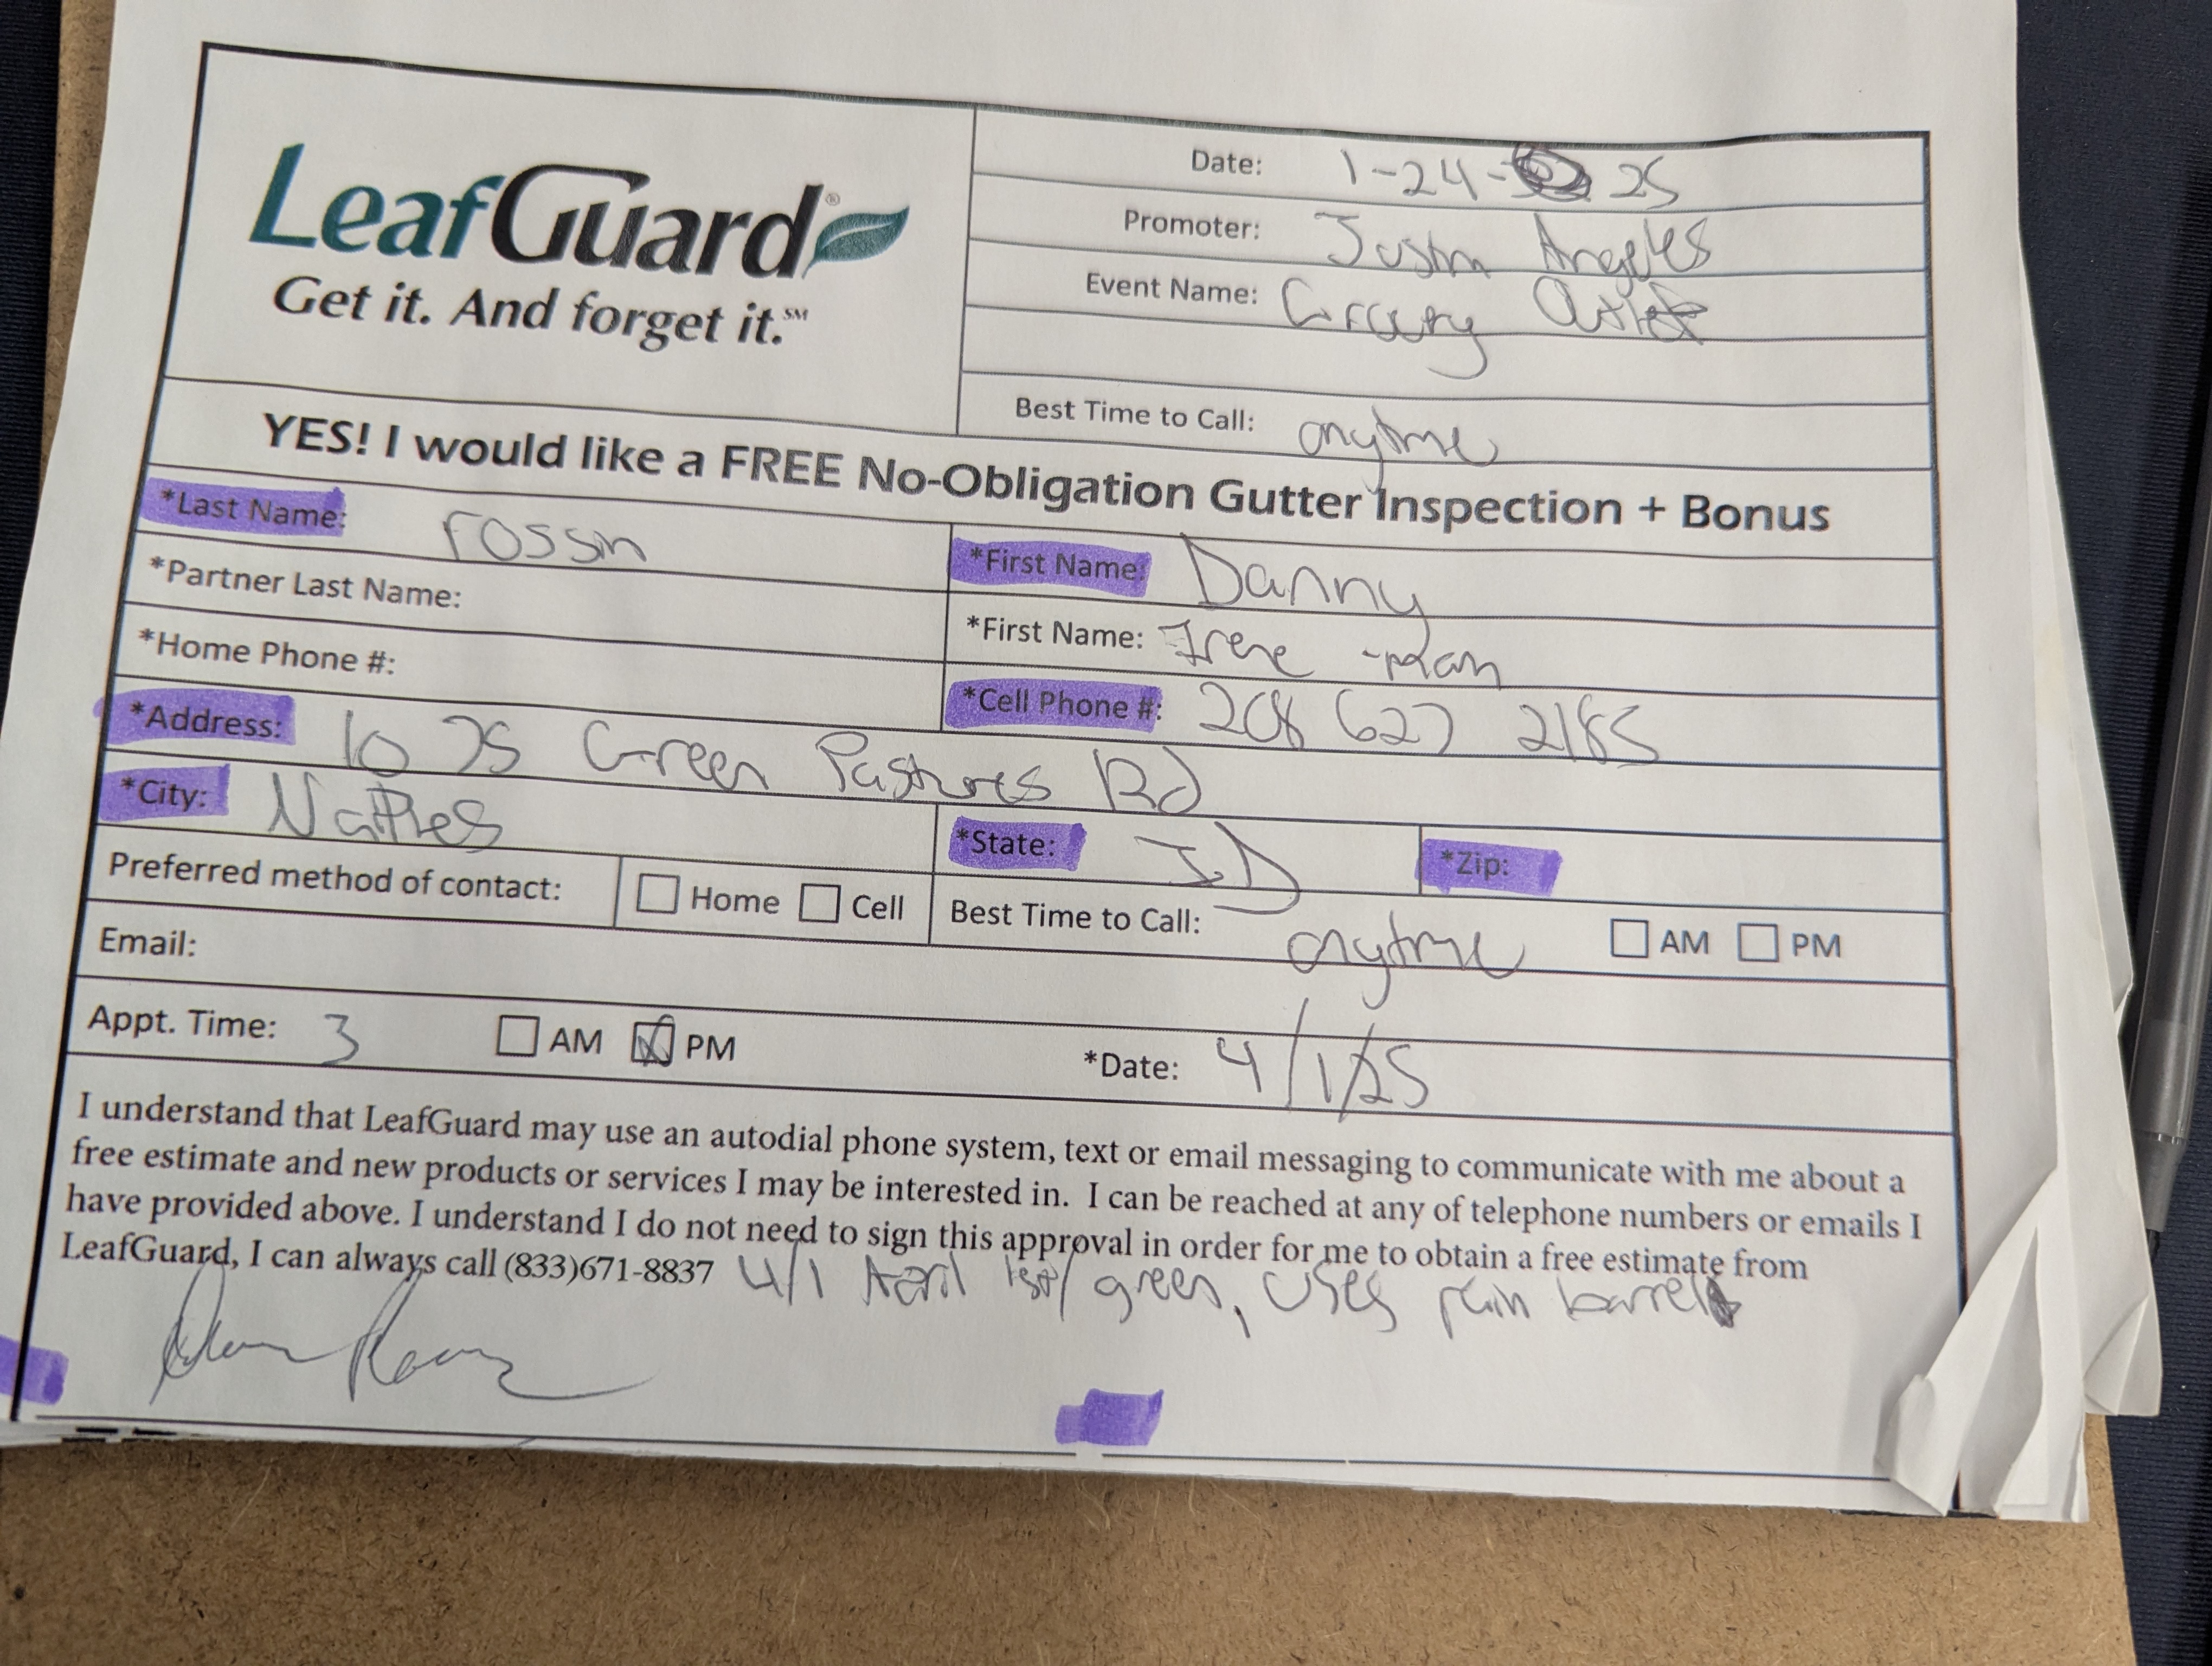 LeafGuard®
Get it. And forget it.℠
Date: 1-24- 25
Promoter: Justin Angeles
Event Name: Grocery Outlet
Best Time to Call: anytime
YES! I would like a FREE No-Obligation Gutter Inspection + Bonus
*Last Name: rossin
*First Name: Danny
*Partner Last Name:
*First Name: Irene
*Home Phone #:
*Cell Phone #: 208 627 2185
*Address: 10 75 Green Pastures Rd
*City: Naples
*State: ID
*Zip:
Preferred method of contact: Home Cell
Best Time to Call: anytime AM PM
Email:
Appt. Time: 3 AM PM
*Date: 4/1/25
I understand that LeafGuard may use an autodial phone system, text or email messaging to communicate with me about a
free estimate and new products or services I may be interested in. I can be reached at any of telephone numbers or emails I
have provided above. I understand I do not need to sign this approval in order for me to obtain a free estimate from
LeafGuard, I can always call (833)671-8837
4/1 April 1st/ green, uses rain barrel